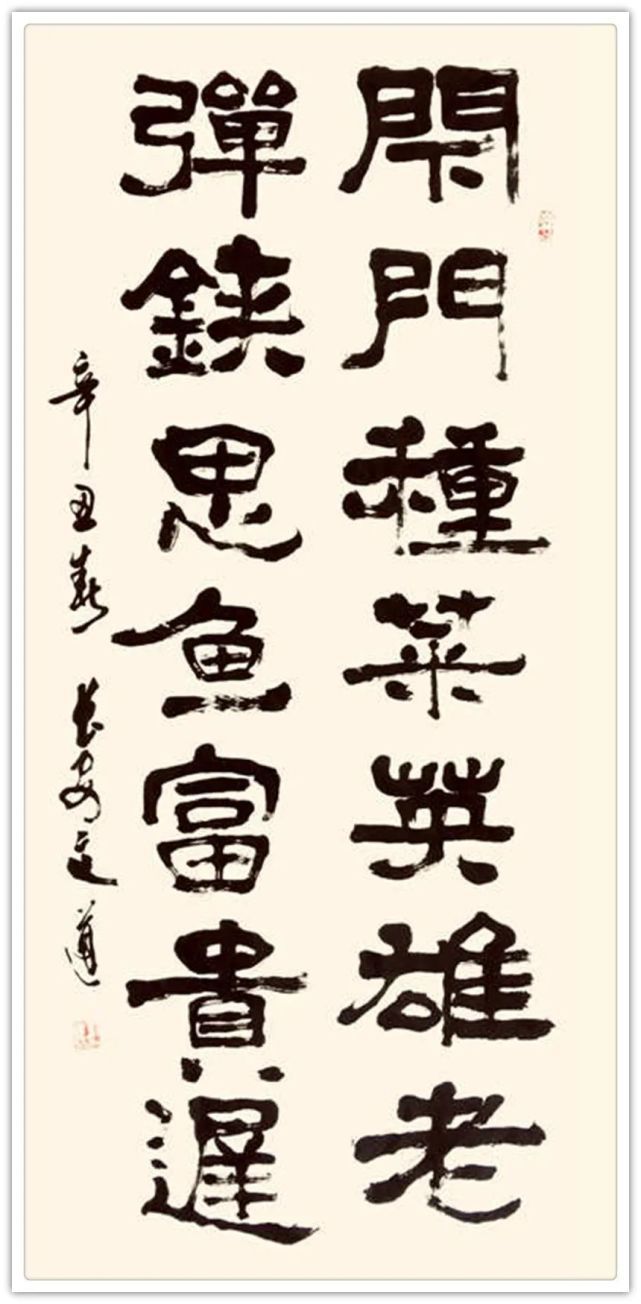 閉門種菜英雄老
彈鋏思鱼富貴遲
辛丑春 長安